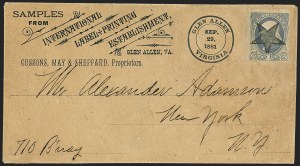 SAMPLES
FROM
INTERNATIONAL
LABEL & PRINTING
ESTABLISHMENT,
GLEN ALLEN, VA.
CUSSONS, MAY & SHEPPARD, Proprietors.
GLEN ALLEN
SEP.
29,
1881
VIRGINIA
Mr Alexander Adamson
New York
N.Y
710 Bway